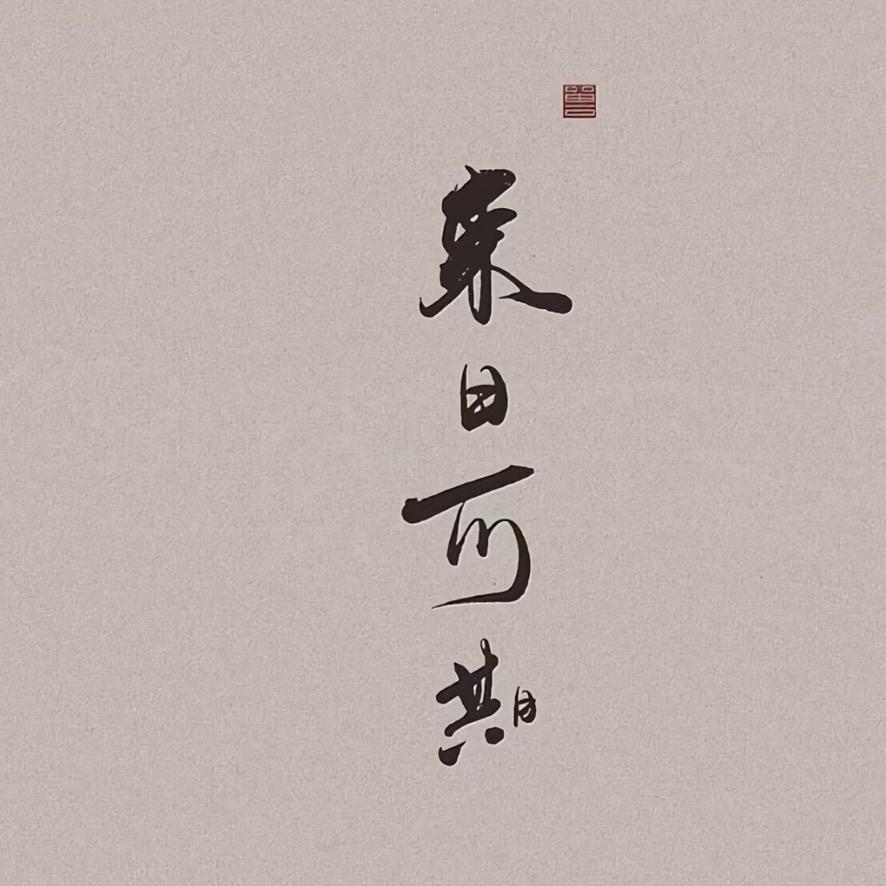 来日可期